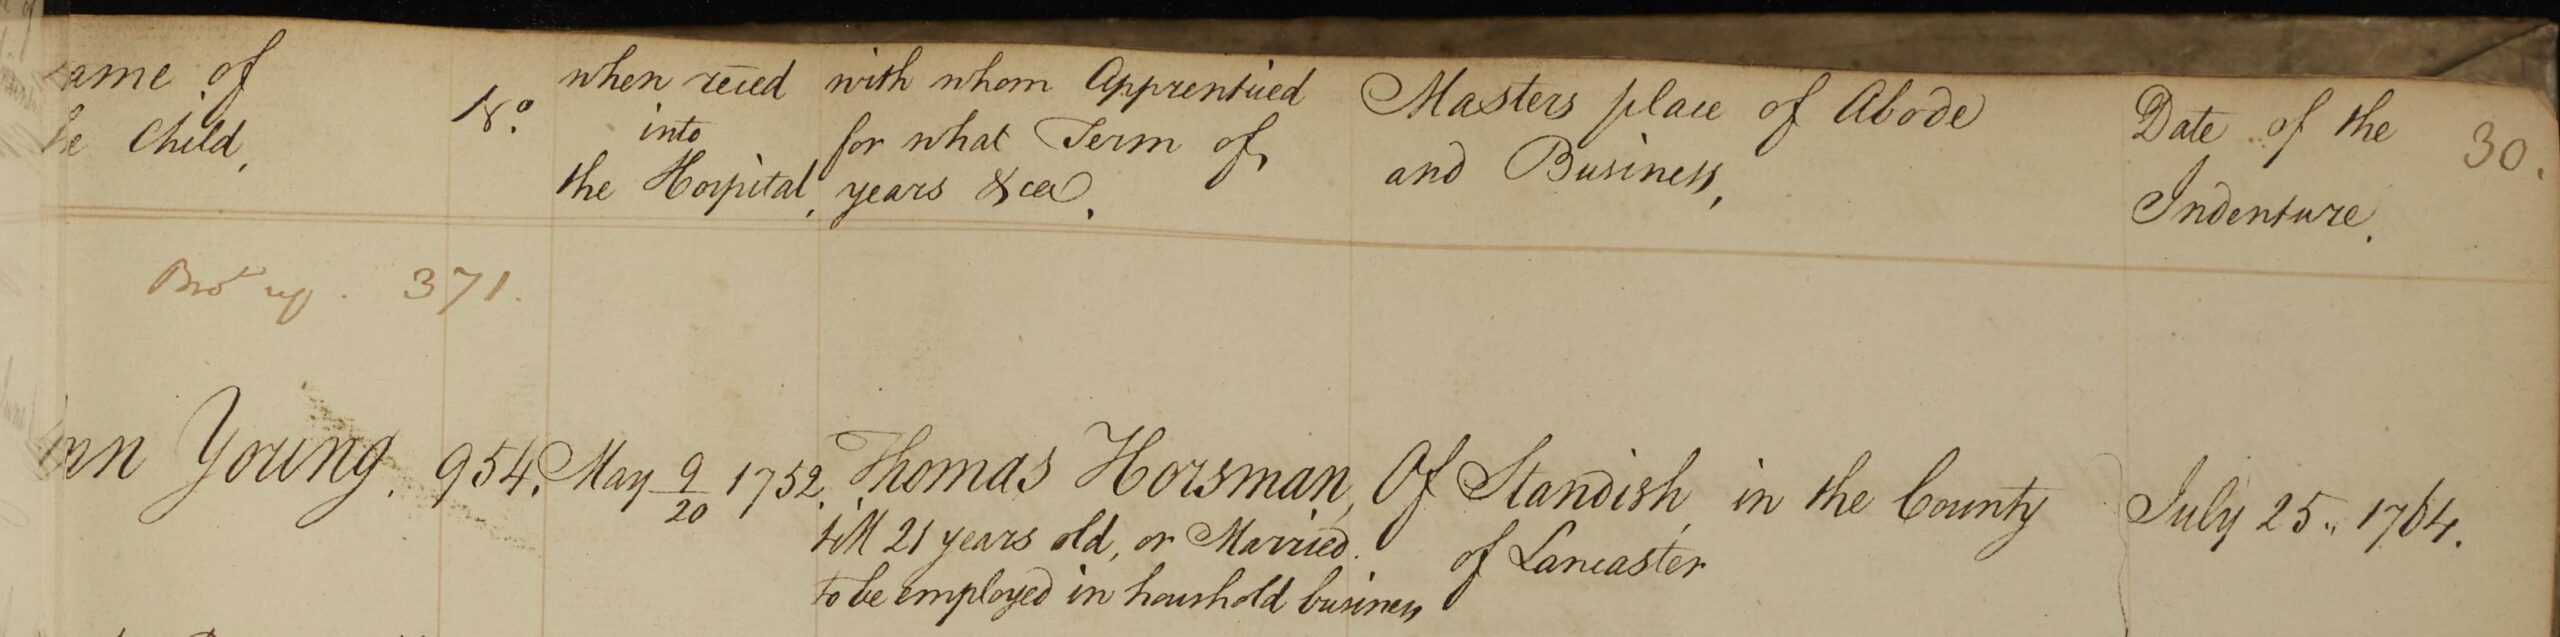 ame of
he Child,
No.
when reced
into
the Hospital,
with whom Apprenticed
for what Term of,
years &ca.
Masters place of Abode
and Business,
Date of the
Indenture.
30.
Brot up. 371.
nn Young. 954. May 9/20 1752. Thomas Horsman, Of Standish, in the County July 25.. 1764.
till 21 years old, or Married. of Lancaster
to be employed in houshold business